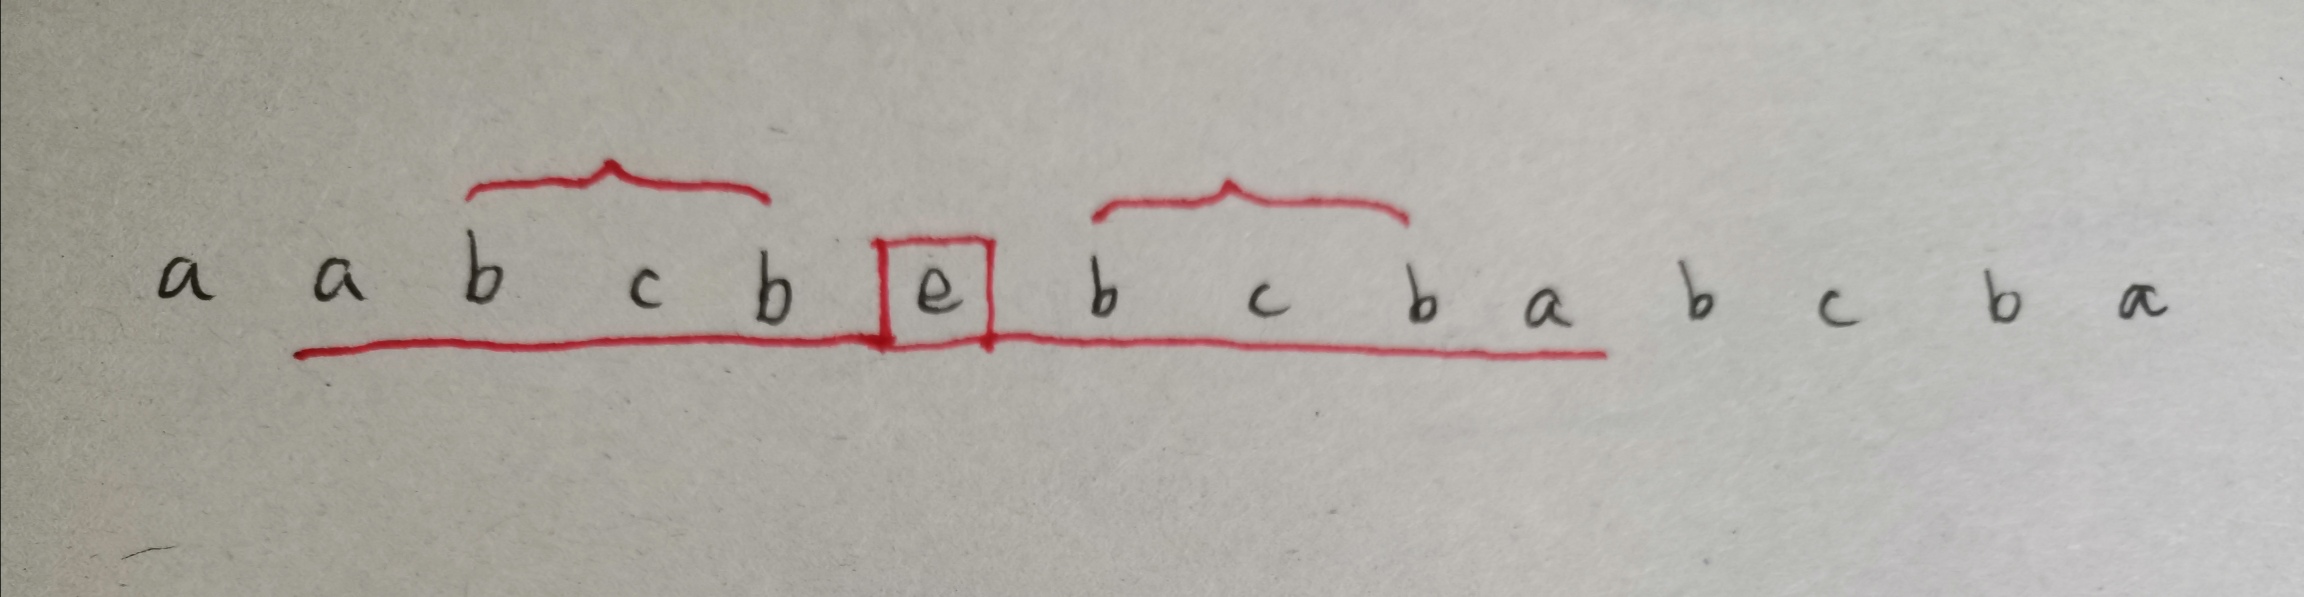 a a b c b e b c b a b c b a